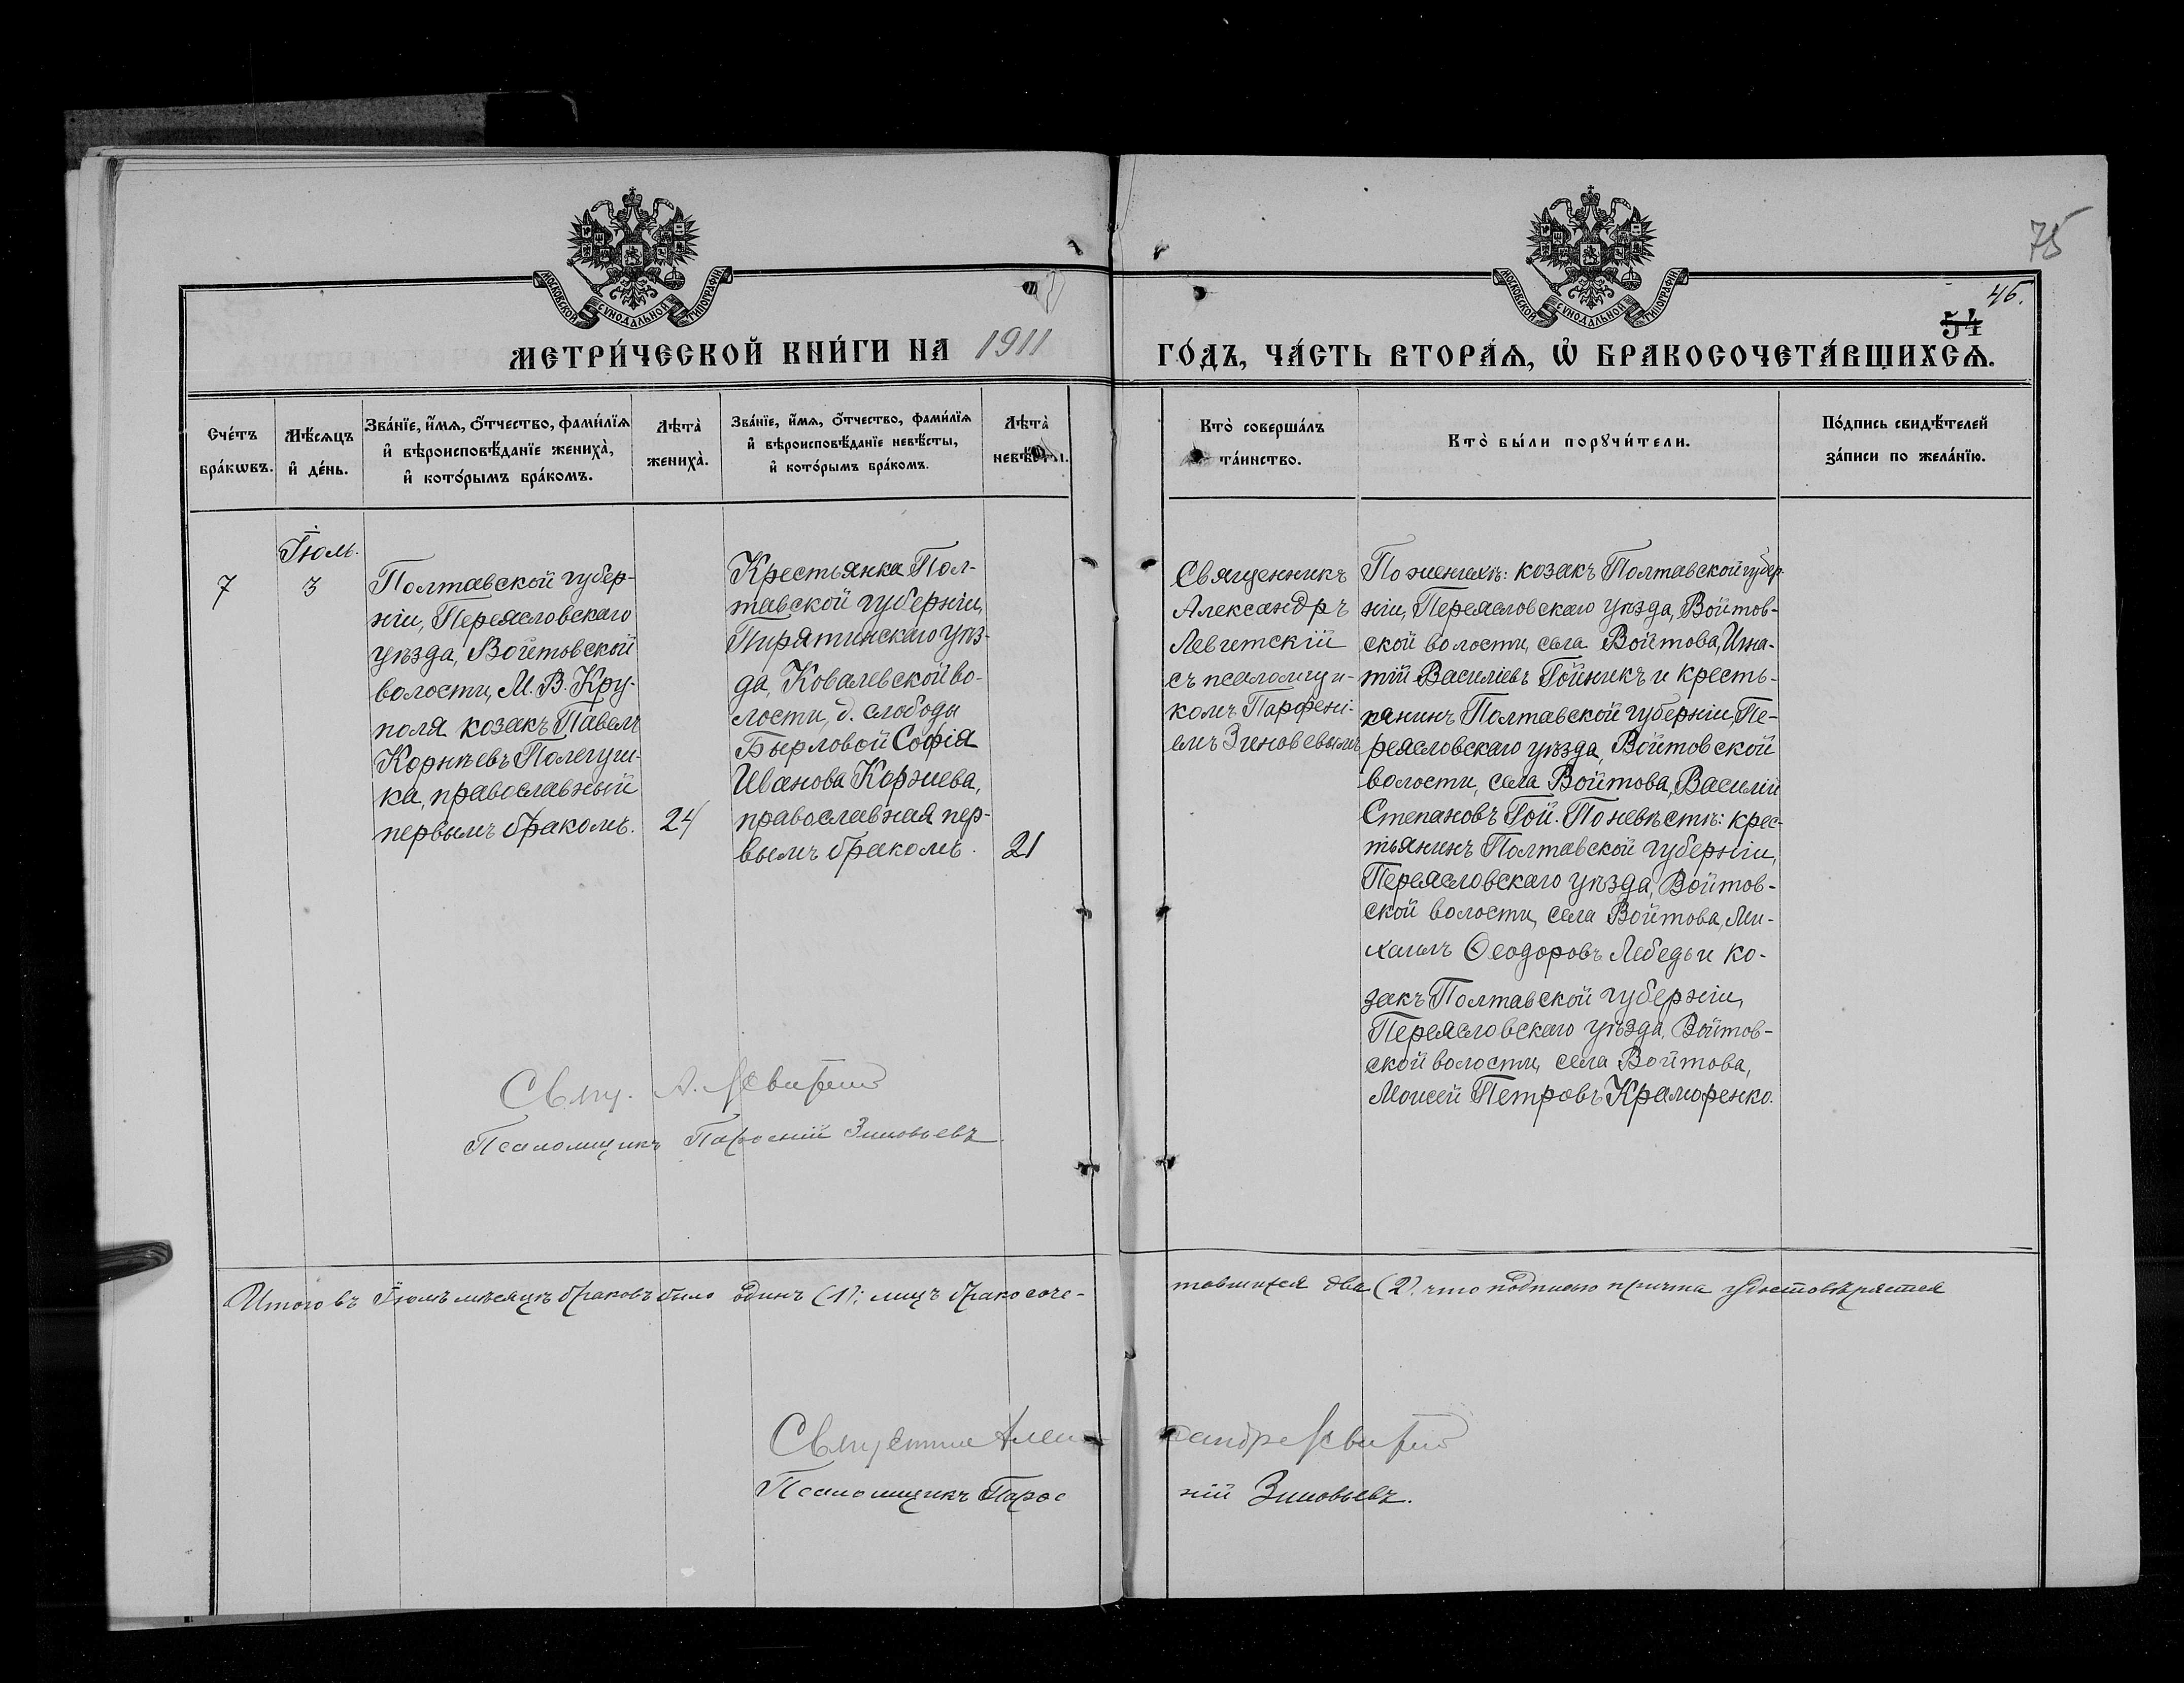 75
46.
54
МОСКОВСКОЙ СѴНОДАЛЬНОЙ ТИПОГРАФІИ
МОСКОВСКОЙ СѴНОДАЛЬНОЙ ТИПОГРАФІИ
МЕТРИ́ЧЕСКОЙ КНИ́ГИ НА 1911 ГО́ДЪ, ЧА́СТЬ ВТОРА́Ѧ, Ѡ҆ БРАКОСОЧЕТА́ВШИХСѦ.
Сче́тъ
бра́кѡвъ.
Мѣ́сѧцъ
и҆ де́нь.
Зва́нїе, и҆́мѧ, ѻ҆́тчество, фами́лїѧ
и҆ вѣроисповѣ́данїе жениха̀,
и҆ кото́рымъ бра́комъ.
Лѣта̀
жениха̀.
Зва́нїе, и҆́мѧ, ѻ҆́тчество, фами́лїѧ
и҆ вѣроисповѣ́данїе невѣ́сты,
и҆ кото́рымъ бра́комъ.
Лѣта̀
невѣ́сты.
Кто̀ соверша́лъ
та́инство.
Кто̀ бы́ли порꙋчи́тели.
По́дпись свидѣ́телей
за́писи по жела́нїю.
7
Іюль.
3
Полтавской губер-
ніи, Переясловскаго
уѣзда, Войтовской
волости, М. В. Кру-
поля козакъ Павелъ
Корнѣевъ Полегуш-
ка, православный
первымъ бракомъ.
24
Крестьянка Пол-
тавской губерніи,
Пирятинскаго уѣз-
да, Ковалевской во-
лости, д. слободы
Бырловой Софія
Иванова Коржева,
православная пер-
вымъ бракомъ.
21
Священникъ
Александръ
Левитскій
съ псаломщи-
комъ Парфені-
емъ Зиновевымъ
По женихѣ: козакъ Полтавской губер-
ніи, Переясловскаго уѣзда, Войтов-
ской волости, села Войтова, Игна-
тій Василіевъ Гойникъ и кресть-
янинъ Полтавской губерніи, Пе-
реясловскаго уѣзда, Войтовской
волости, села Войтова, Василій
Степановъ Гой. По невѣстѣ: крес-
тьянинъ Полтавской губерніи,
Переясловскаго уѣзда, Войтов-
ской волости, села Войтова, Ми-
хаилъ Ѳеодоровъ Лебедь и ко-
закъ Полтавской губерніи,
Переясловскаго уѣзда, Войтов-
ской волости, села Войтова,
Моисей Петровъ Крамаренко.
Свящ. А. Левитскій
Псаломщикъ Парѳеній Зиновьевъ
Итого въ Іюлѣ мѣсяцѣ браковъ было одинъ (1); лицъ бракосоче-
тавшихся два (2). что подписью причта удостовѣряется
Священникъ Александръ Левитскій
Псаломщикъ Парѳеній Зиновьевъ.